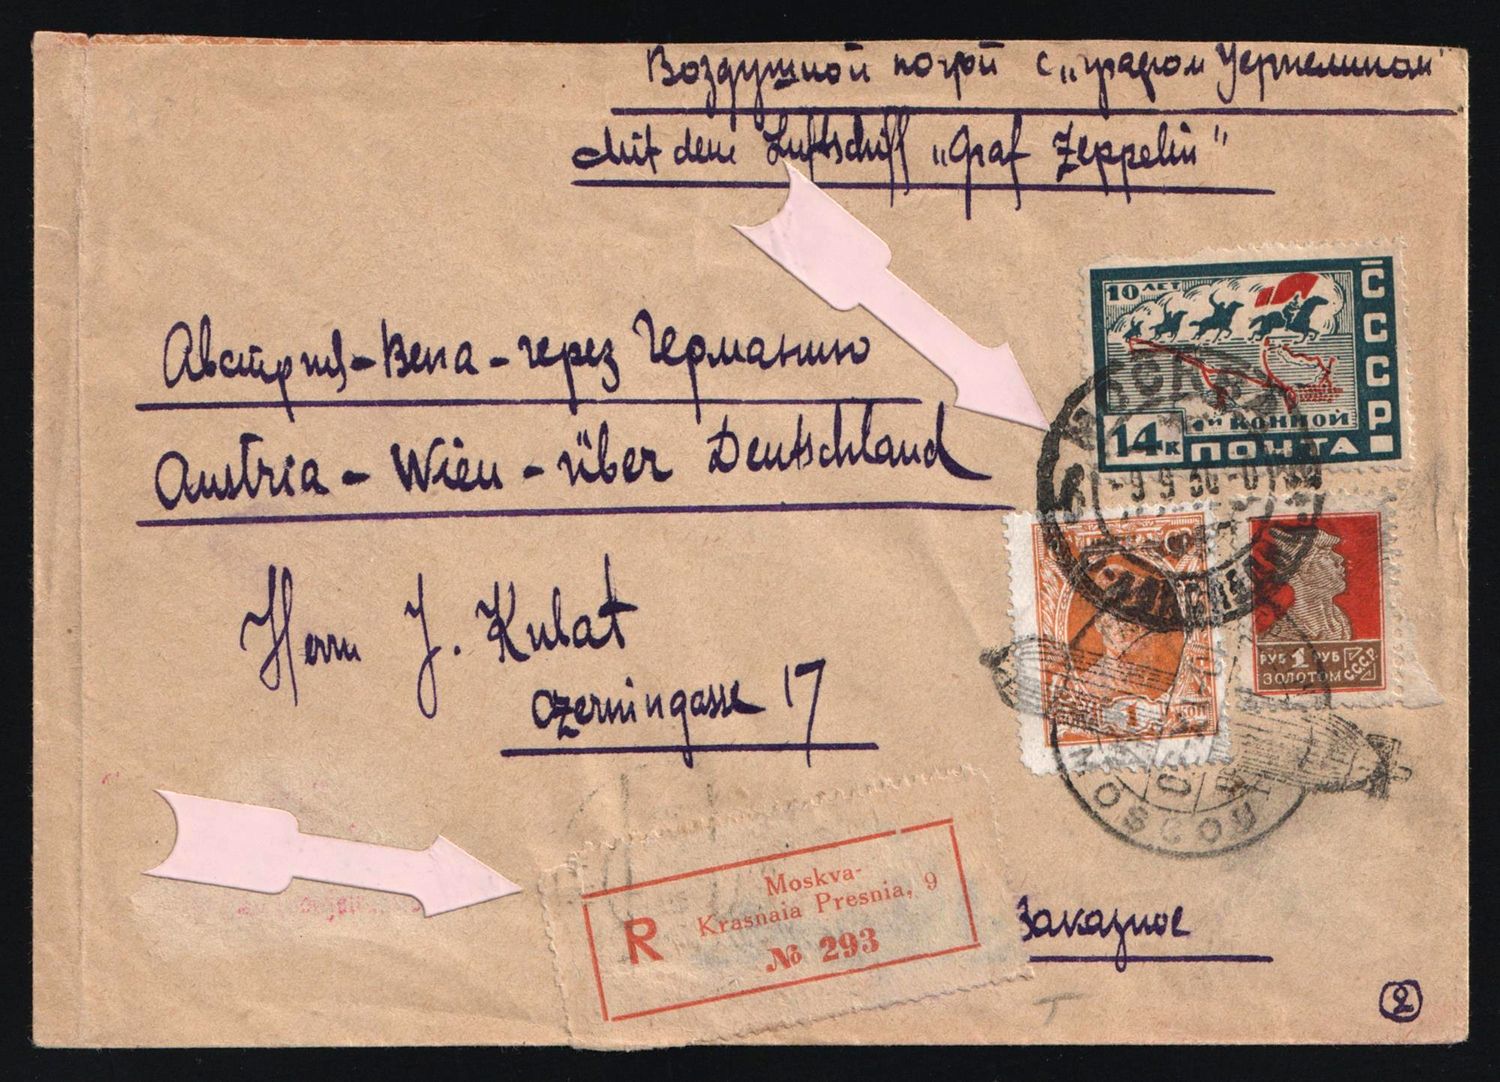 Воздушной почтой с „графом Цеппелином"
Mit dem Luftschiff „Graf Zeppelin"
10 ЛЕТ
СССР
1ой КОННОЙ
14к ПОЧТА
Австрия – Вена – через Германию
Austria – Wien – über Deutschland
МОСКВА
-9 9 30
РУБ 1 РУБ
ЗОЛОТОМ СССР
1
Herrn J. Kubat
Czerningasse 17
MOSCOU
Moskva-
Krasnaia Presnia, 9
R
№ 293
Заказное
2